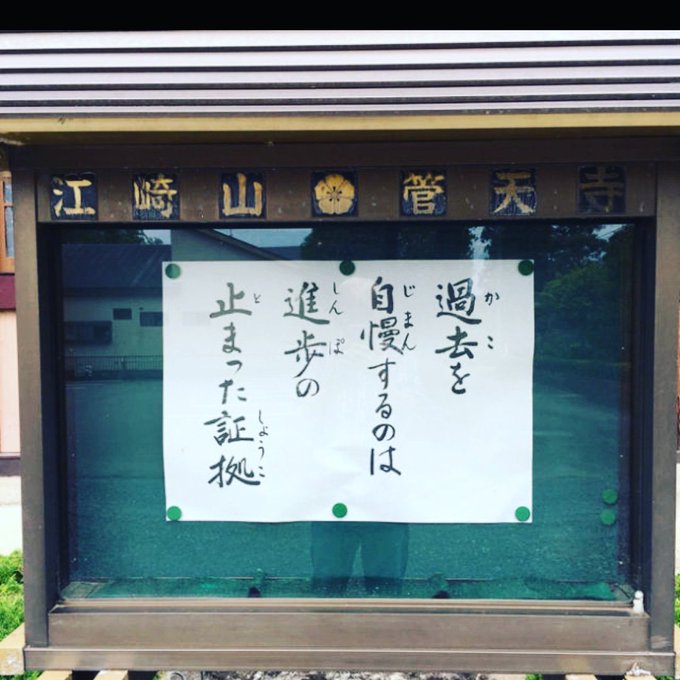 江崎山管天寺
過去を
自慢するのは
進歩の
止まった証拠
かこ
じまん
しんぽ
と
しょうこ